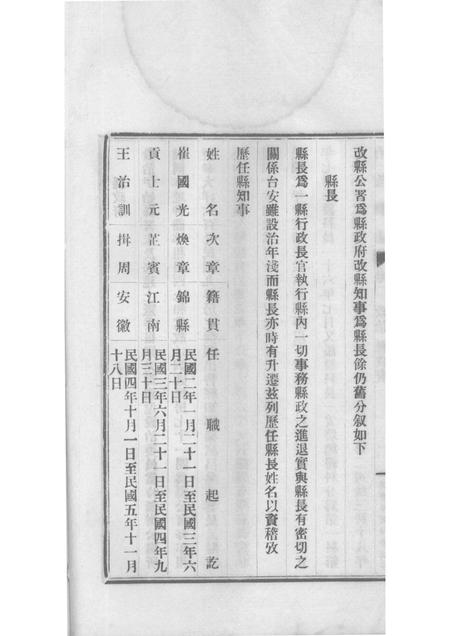 改縣公署爲縣政府改縣知事爲縣長餘仍舊分叙如下
縣長
縣長爲一縣行政長官執行縣內一切事務縣政之進退實與縣長有密切之
關係台安雖設治年淺而縣長亦時有升遷茲列歷任縣長姓名以資稽攷
歷任縣知事
姓名次章籍貫任職起訖
崔國光煥章錦縣民國二年一月二十一日至民國三年六
月二十日
貢士元芷賓江南民國三年六月二十一日至民國四年九
月三十日
王治訓揖周安徽民國四年十月一日至民國五年十一月
十八日